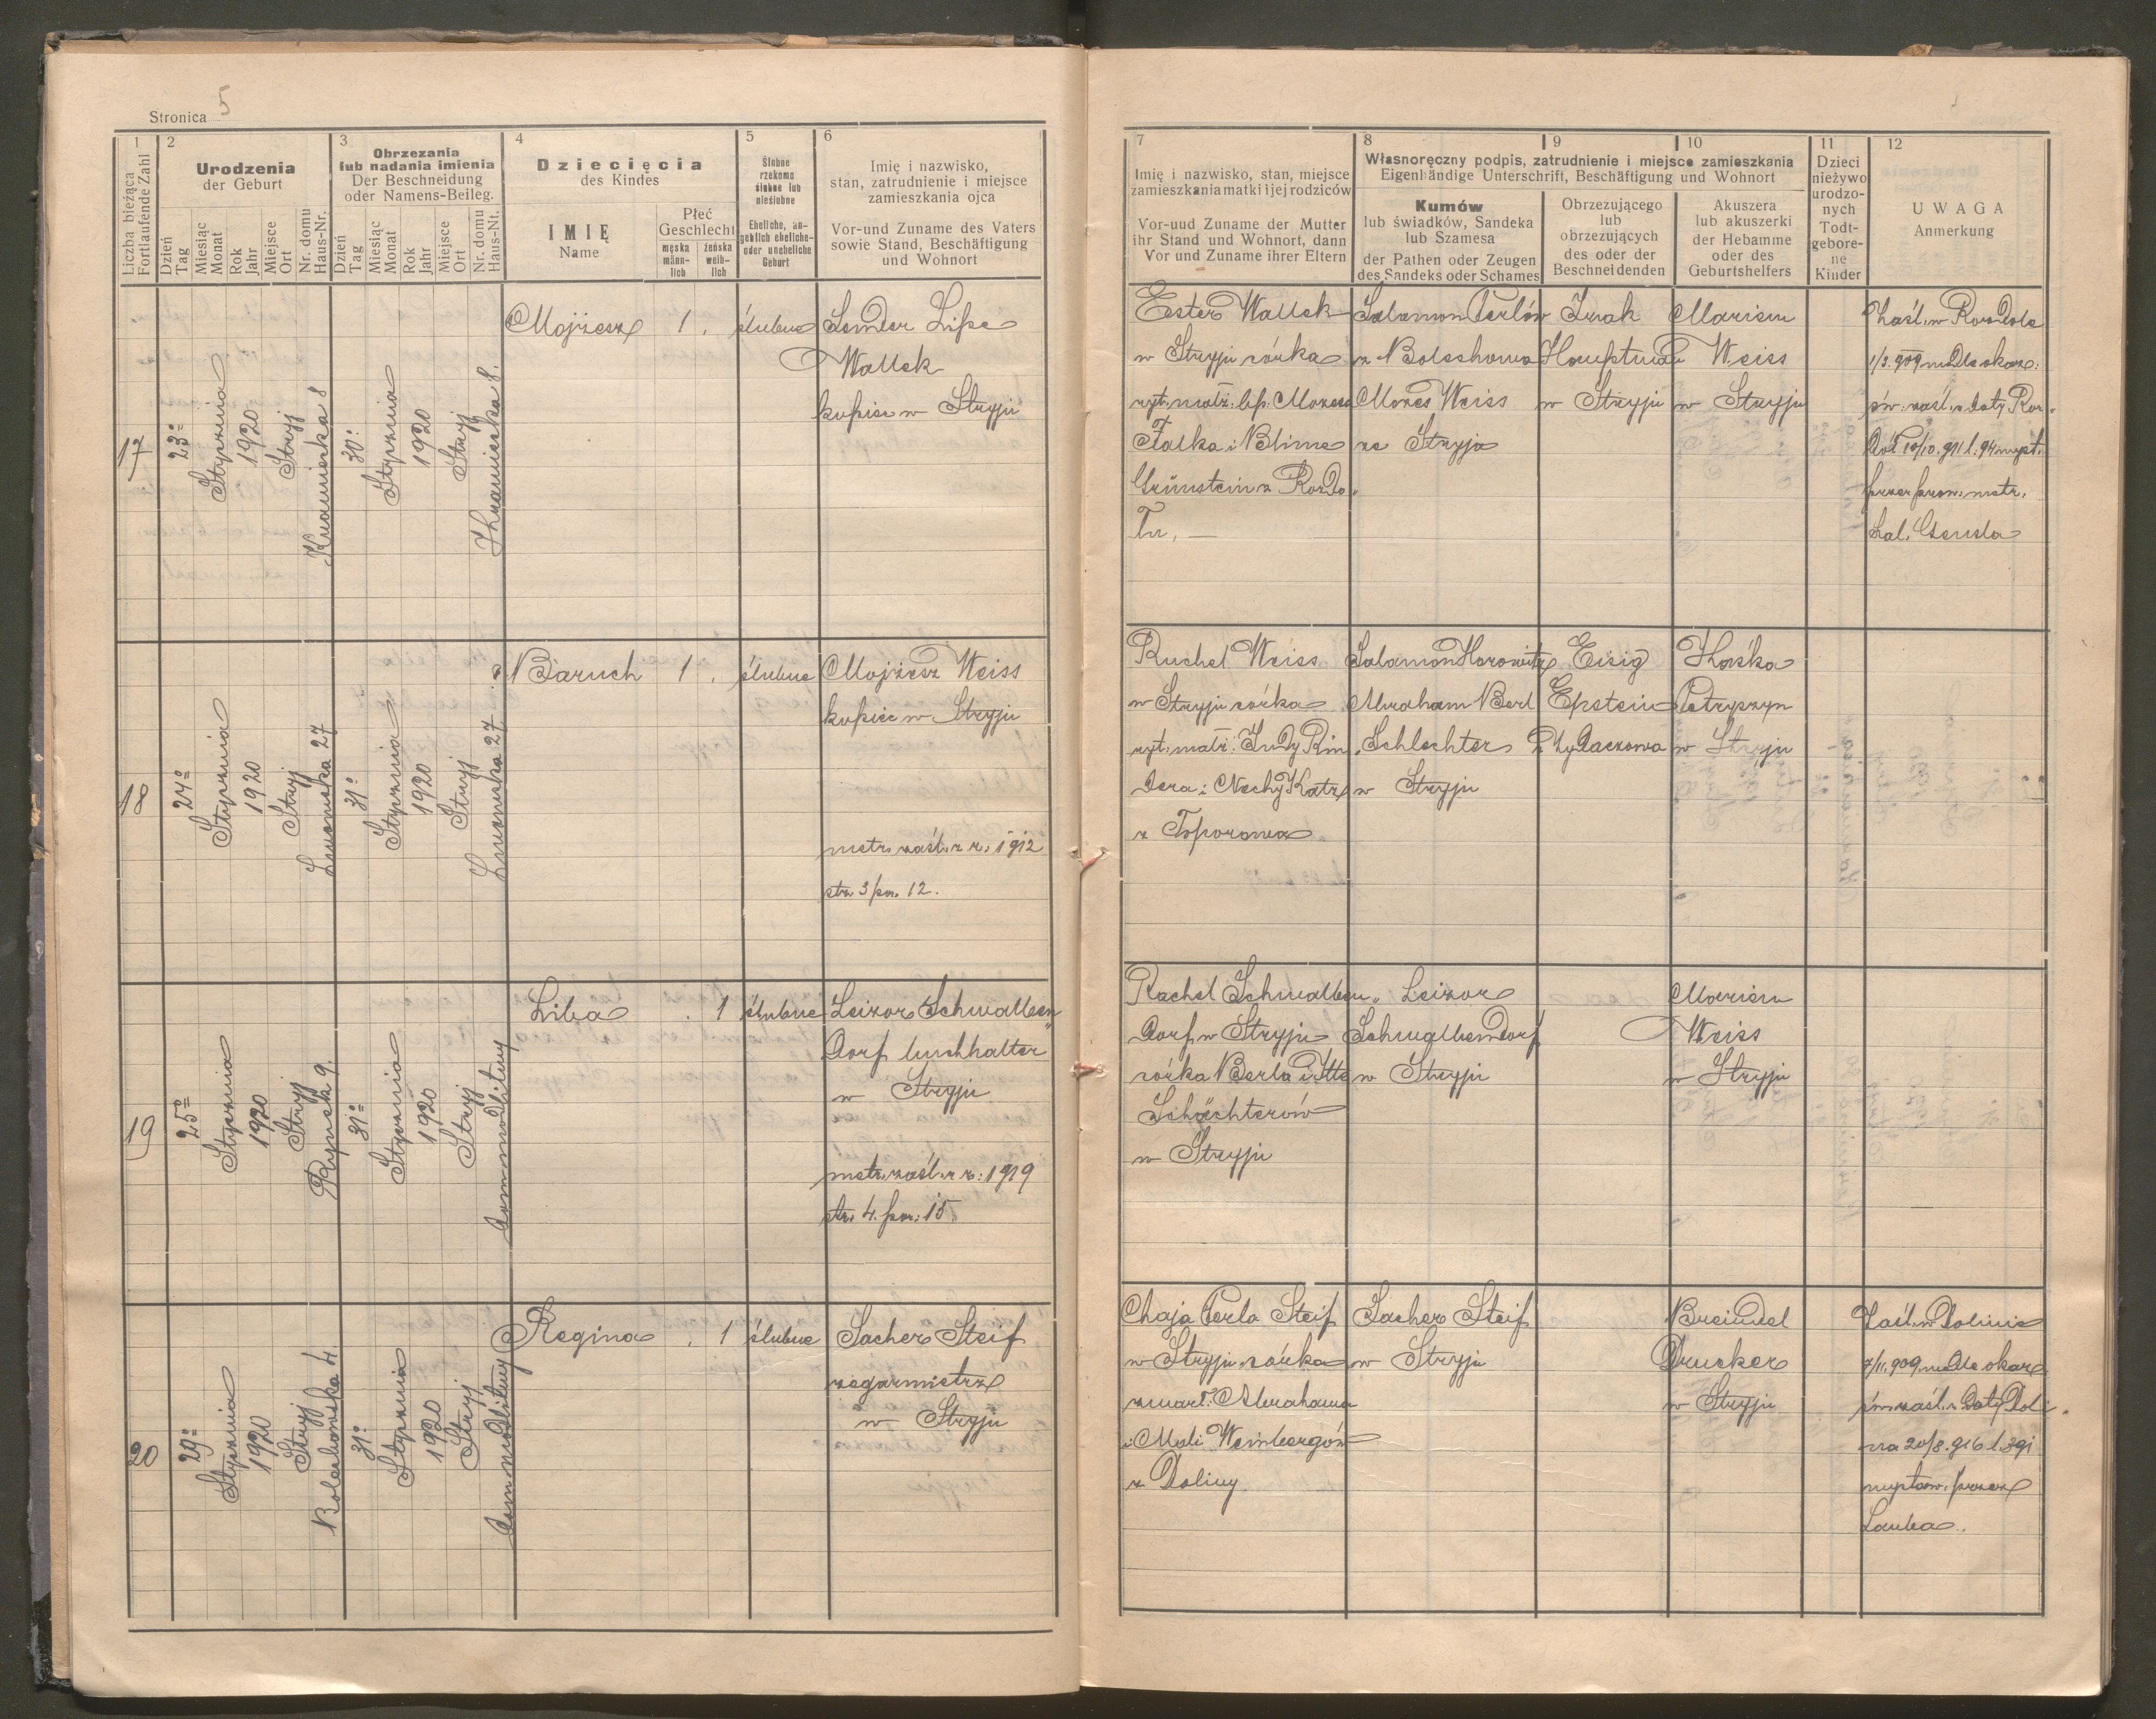 Stronica 5
1
Liczba bieżąca
Fortlaufende Zahl
2
Urodzenia
der Geburt
Dzień
Tag
Miesiąc
Monat
Rok
Jahr
Miejsce
Ort
Nr. domu
Haus-Nr.
3
Obrzezania
lub nadania imienia
Der Beschneidung
oder Namens-Beileg.
Dzień
Tag
Miesiąc
Monat
Rok
Jahr
Miejsce
Ort
Nr. domu
Haus-Nt.
4
Dziecięcia
des Kindes
IMIĘ
Name
Płeć
Geschlecht
męska
männ-
lich
żeńska
weib-
lich
5
Ślubne
rzekomo
ślubne lub
nieślubne
Eheliche, an-
geblich eheliche-
oder uneheliche
Geburt
6
Imię i nazwisko,
stan, zatrudnienie i miejsce
zamieszkania ojca
Vor-und Zuname des Vaters
sowie Stand, Beschäftigung
und Wohnort
7
Imię i nazwisko, stan, miejsce
zamieszkania matki i jej rodziców
Vor-uud Zuname der Mutter
ihr Stand und Wohnort, dann
Vor und Zuname ihrer Eltern
8
9
10
Własnoręczny podpis, zatrudnienie i miejsce zamieszkania
Eigenhändige Unterschrift, Beschäftigung und Wohnort
Kumów
lub świadków, Sandeka
lub Szamesa
der Pathen oder Zeugen
des Sandeks oder Schames
Obrzezującego
lub
obrzezujących
des oder der
Beschneidenden
Akuszera
lub akuszerki
der Hebamme
oder des
Geburtshelfers
11
Dzieci
nieżywo
urodzo-
nych
Todt-
gebore-
ne
Kinder
12
UWAGA
Anmerkung
17
23
Stycznia
1920
Stryj
8
30
Stycznia
1920
Stryj
8.
Mojżesz
1.
ślubne
Sender Lipe
Wallek
kupiec w Stryju
Ester Wallek
w Stryju córka
ryt. małż. lip. Mozesa
Falka i Blime
Grünstein z Rozdo
łu, —
Salamon Perlów
z Bolechowa
Mozes Weiss
ze Stryja
Izak
Hauptman
w Stryju
Mariem
Weiss
w Stryju
Zaśl. w Rozdole
1/3. 909 wedle okaz.
św. zaśl. z daty Roz
przez prow. metr.
18
24
Stycznia
1920
Stryj
Lwowska 27
31
Stycznia
1920
Stryj
Lwowska 27
Baruch
1.
ślubne
Mojżesz Weiss
kupiec w Stryju
metr. zaśl. z r. 1912
str. 3 poz. 12.
Ruchel Weiss
w Stryju córka
ryt. małż. Judy Rin
dera i Nechy Katz
z Toporowa
Salamon Horowitz
Abraham Berl
Schlechter
w Stryju
Eisig
Epstein
z Żydaczowa
Hośka
Petryszyn
w Stryju
19
25
Stycznia
1920
Stryj
Rynek 9.
31
Stycznia
1920
Stryj
dom modlitwy
Liba
. 1
ślubne
Leizor Schwalben
dorf buchhalter
w Stryju
metr. zaśl. z r. 1919
str. 4. poz. 15
Rachel Schwalben
dorf w Stryju
córka Berla i Itte
Schächterów
w Stryju
Leizor
Schwalbendorf
w Stryju
Mariem
Weiss
w Stryju
20
29
Stycznia
1920
Stryj
Bolechowska 4.
31
Stycznia
1920
Stryj
dom modlitwy
Regina
. 1
ślubne
Sacher Steif
zegarmistrz
w Stryju
Chaja Perla Steif
w Stryju córka
zmarł. Abrahama
i Mali Weinbergów
z Doliny
Sacher Steif
w Stryju
Breindel
Drucker
w Stryju
Zaśl. w Dolinie
7/11. 909 wedle okaz
św. zaśl. z daty Doli
na 20/8. 916 l. 391
wystaw. przez
Lauba.